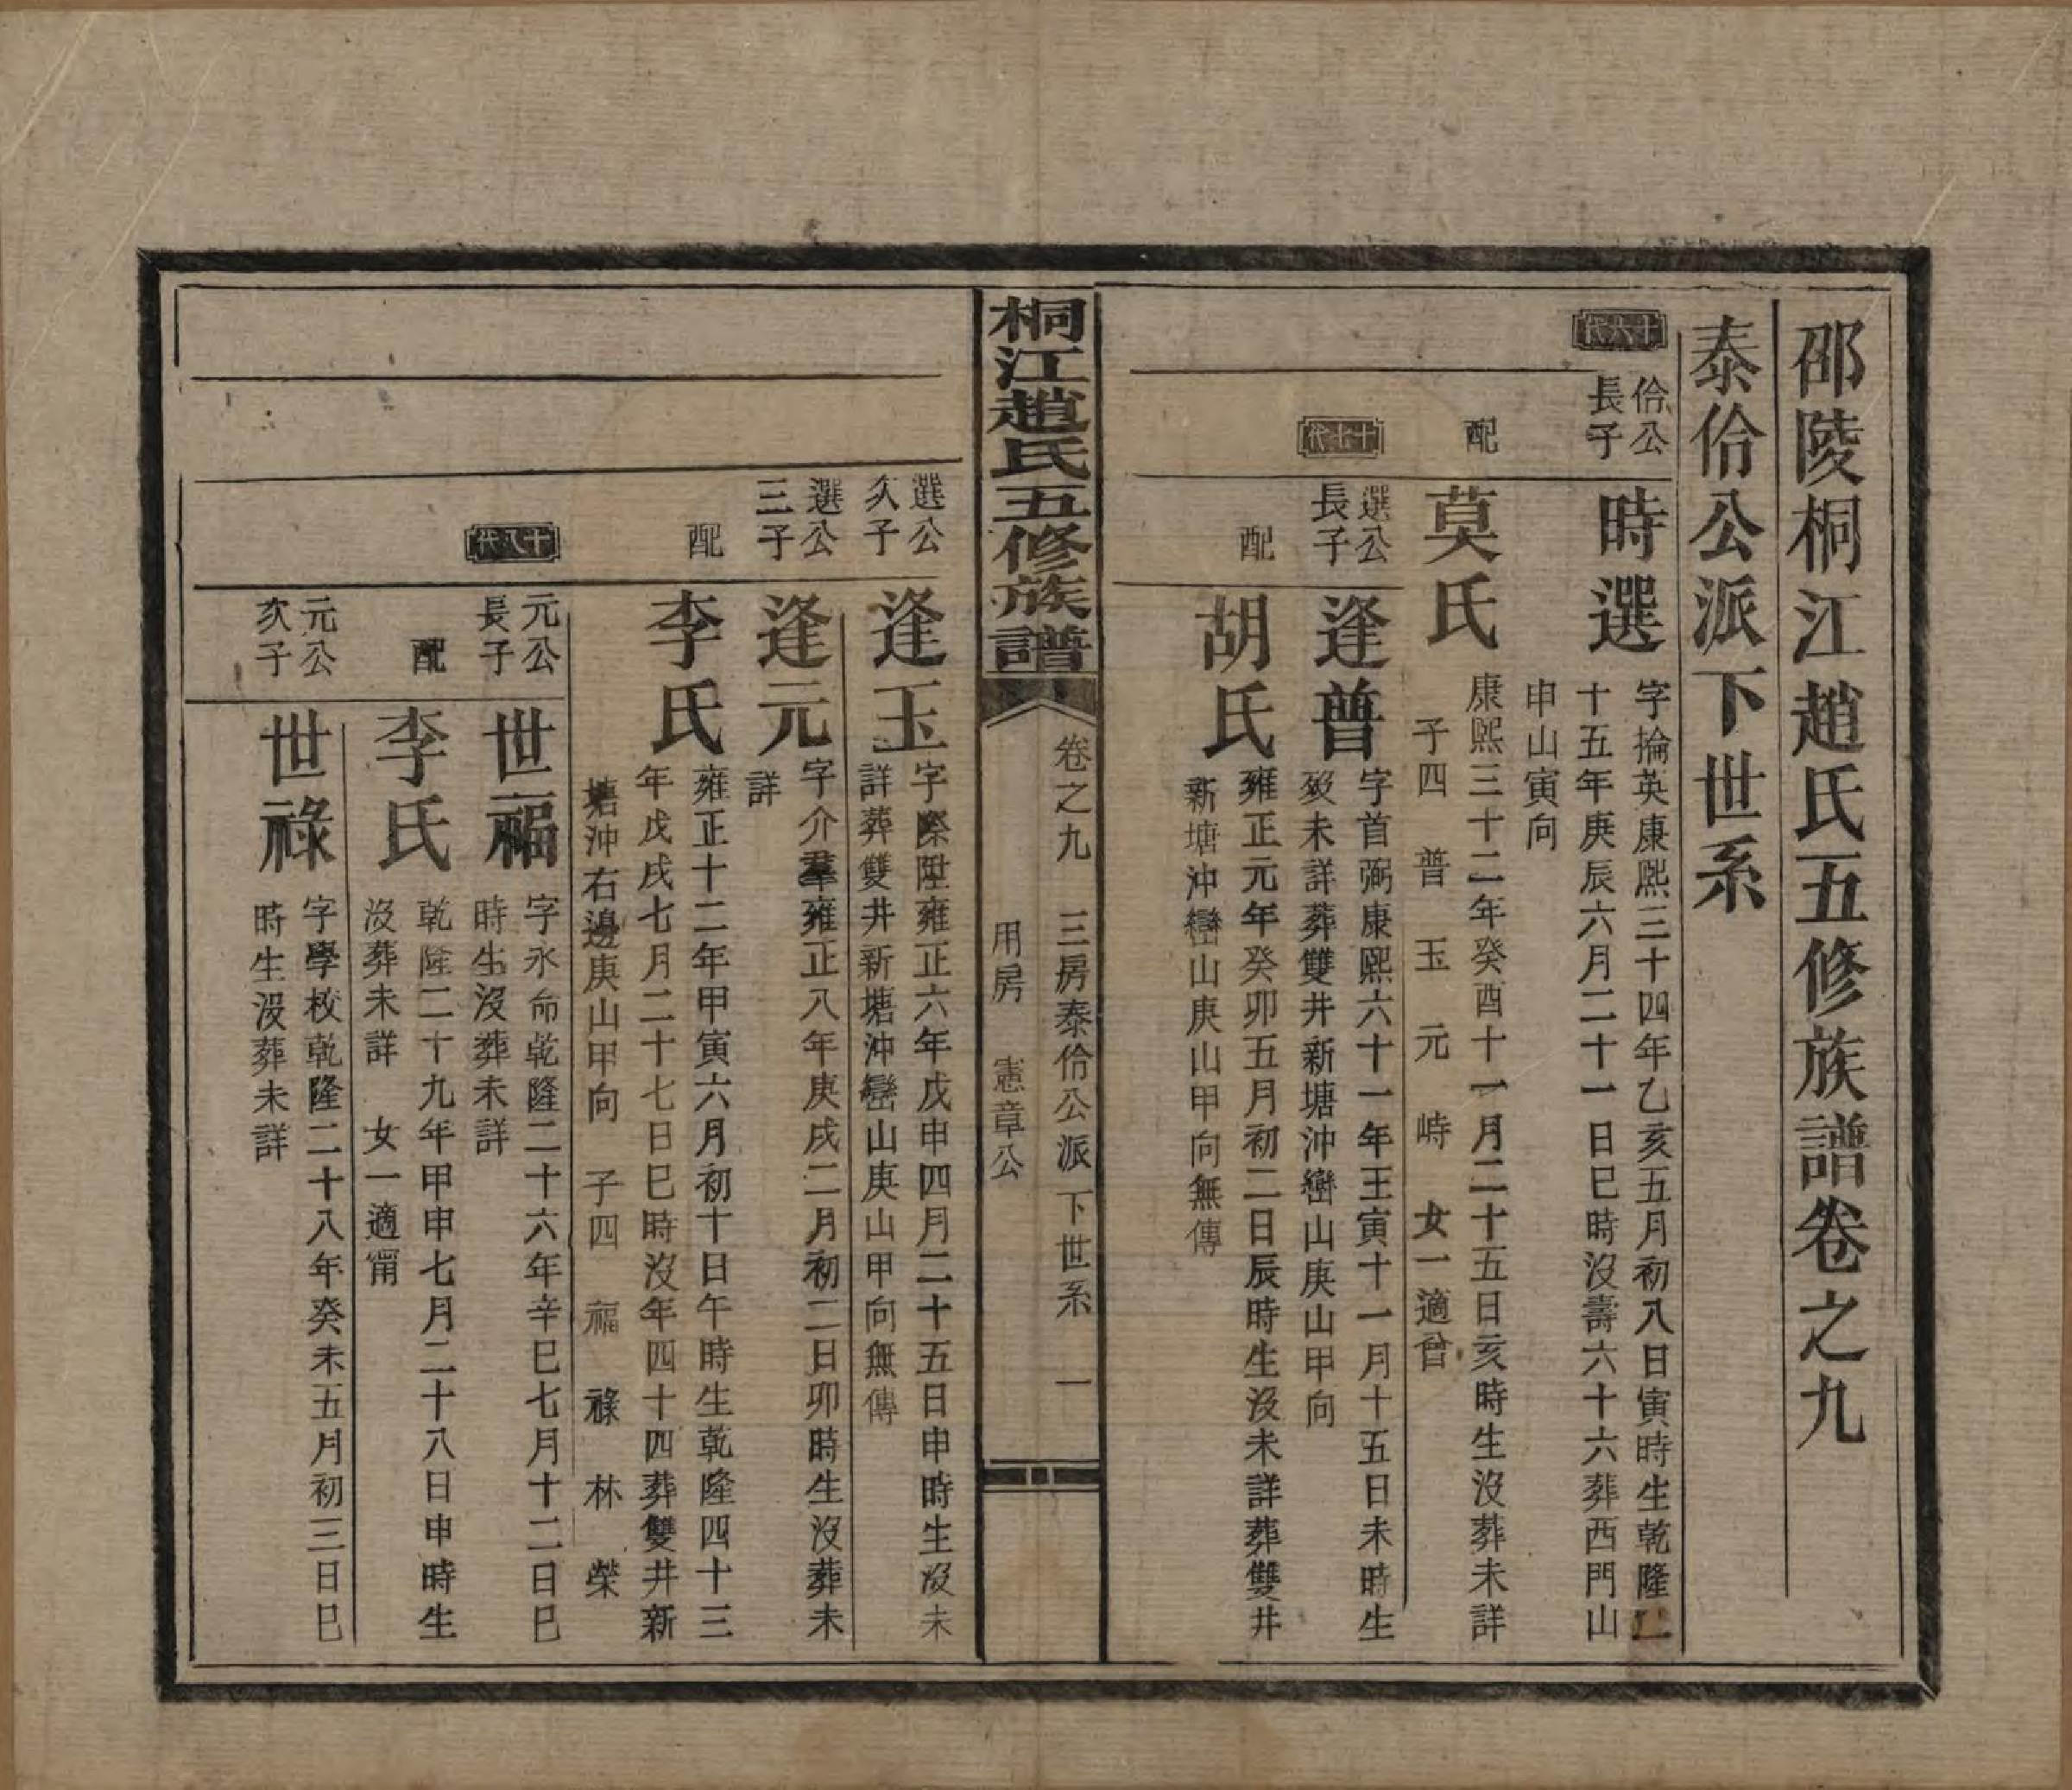 邵陵桐江趙氏五修族譜卷之九
泰佁公派下世系
十六代
佁公長子
時選
字掄英康熙三十四年乙亥五月初八日寅時生乾隆二
十五年庚辰六月二十一日巳時沒壽六十六葬西門山
申山寅向
配
莫氏
康熙三十二年癸酉十一月二十五日亥時生沒葬未詳
子四 普 玉 元 峙 女一適曾
十七代
選公長子
逢普
字首弼康熙六十一年壬寅十一月十五日未時生
歿未詳葬雙井新塘沖巒山庚山甲向
配
胡氏
雍正元年癸卯五月初二日辰時生沒未詳葬雙井
新塘沖巒山庚山甲向無傳
桐江趙氏五修族譜
卷之九 三房泰佁公派下世系 一
用房 憲章公
選公次子
逢玉
字際陞雍正六年戊申四月二十五日申時生沒未
詳葬雙井新塘沖巒山庚山甲向無傳
選公三子
逢元
字介羣雍正八年庚戌二月初二日卯時生沒葬未
詳
配
李氏
雍正十二年甲寅六月初十日午時生乾隆四十三
年戊戌七月二十七日巳時沒年四十四葬雙井新
塘沖右邊庚山甲向 子四 福 祿 林 榮
十八代
元公長子
世福
字永命乾隆二十六年辛巳七月十二日巳
時生沒葬未詳
配
李氏
乾隆二十九年甲申七月二十八日申時生
沒葬未詳 女一適甯
元公次子
世祿
字學校乾隆二十八年癸未五月初三日巳
時生沒葬未詳